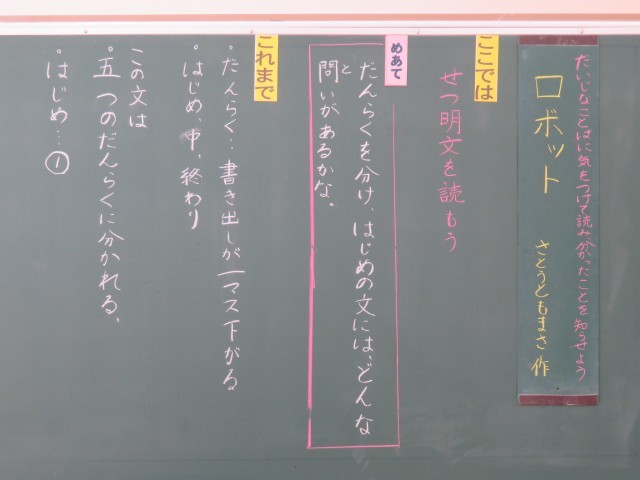 だいじなことばに気をつけて読み、分かったことを知らせよう
ロボット
さとうともまさ 作
ここでは
せつ明文を読もう
めあて
だんらくを分け、はじめの文には、どんな
と
問いがあるかな。
これまで
・だんらく…書き出しが一マス下がる
・はじめ、中、終わり
この文は
・五つのだんらくに分かれる。
・はじめ…①